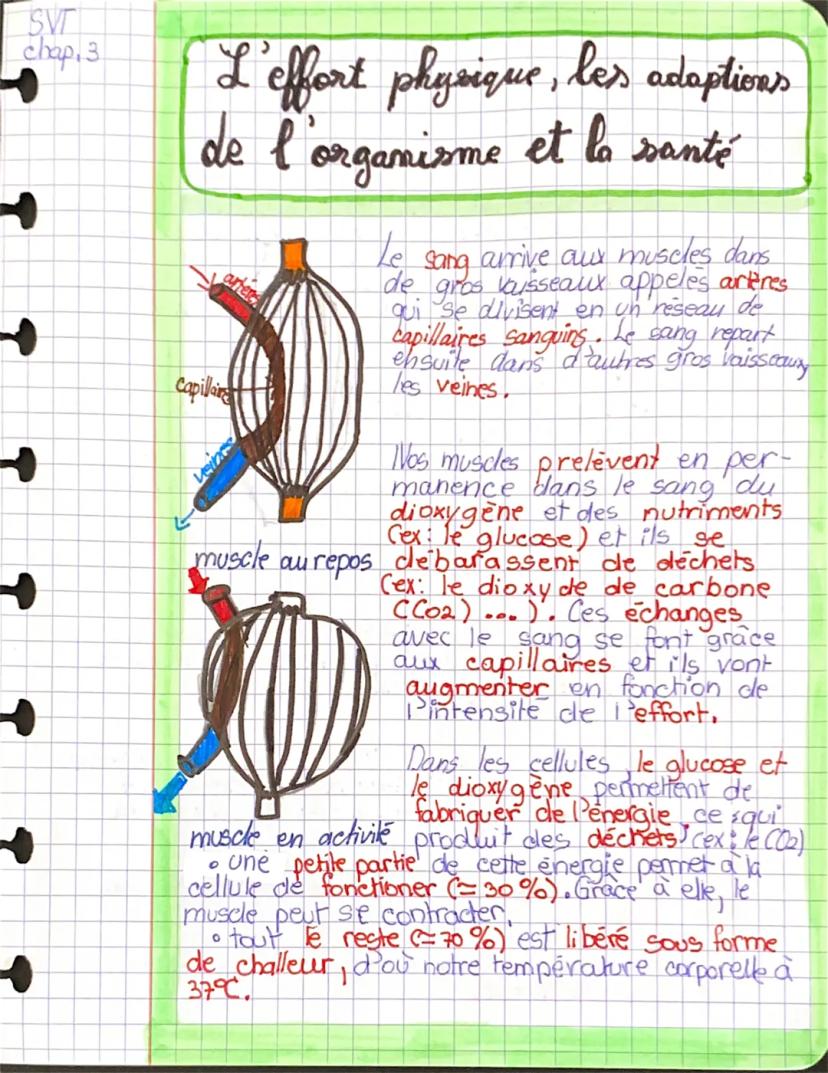 SVT
chap. 3
L'effort physique, les adaptions
de l'organisme et la santé
Le sang arrive aux muscles dans
de gros vaisseaux appelés artères
qui se divisent en un réseau de
capillaires sanguins. Le sang repart
ensuite dans d'autres gros vaisseaux
les veines.
artères
capillaire
veines
muscle au repos
Nos muscles prelèvent en per-
manence dans le sang du
dioxygène et des nutriments
(ex: le glucose) et ils se
débarassent de déchets
(ex: le dioxyde de carbone
(CO2) ...). Ces échanges
avec le sang se font grâce
aux capillaires et ils vont
augmenter en fonction de
l'intensité de l'effort.
Dans les cellules, le glucose et
le dioxygène permettent de
fabriquer de l'énergie, ce qui
muscle en activité
produit des déchets (ex: le CO2)
• une petite partie de cette énergie permet à la
cellule de fonctioner (≃ 30 %). Grâce à elle, le
muscle peut se contracter.
• tout le reste (≃ 70 %) est libéré sous forme
de challeur, d'où notre température corporelle à
37°C.